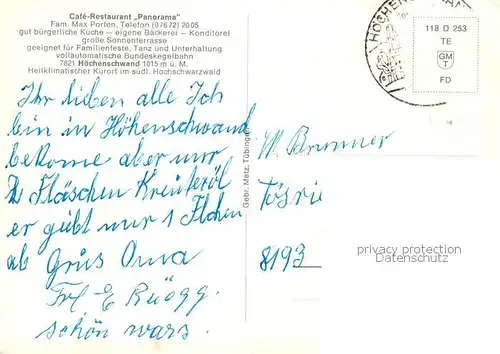 Café-Restaurant „Panorama"
Fam. Max Porten, Telefon (07672) 2005
gut bürgerliche Küche — eigene Bäckerei — Konditorei
große Sonnenterrasse
geeignet für Familienfeste, Tanz und Unterhaltung
vollautomatische Bundeskegelbahn
7821 Höchenschwand 1015 m ü. M.
Heilklimatischer Kurort im südl. Hochschwarzwald
Ihr lieben alle Ich
bin in Höhenschwand
bekome aber nur
2 Fläschen Kreuteröl
er giebt nur 1 Flchen
ab Grüs Oma
Frl E Rüögg.
schön wars.
Gebr. Metz, Tübingen
HÖCHENSCHWAND
118 D 253
TE
GM
T
FD
W. Brunner
Tösrie
8193
privacy protection
DATENSCHUTZ